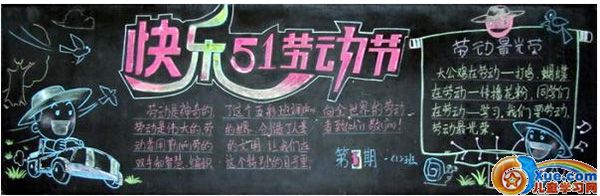 快乐51劳动节
劳动是神奇的,
劳动是伟大的,劳
动者用勤劳的
双手和智慧,编织
了这个五彩班斓的
的世界,创造了人类
的文明。让我们在
这个特别的日子里
向全世界的劳动
者致以崇敬
第 期
劳动最光荣
大公鸡在劳动—打鸣,蝴蝶
在劳动—传播花粉,同学们
在劳动—学习,我们要劳动,
劳动最光荣。
Xue.com
儿童学习网